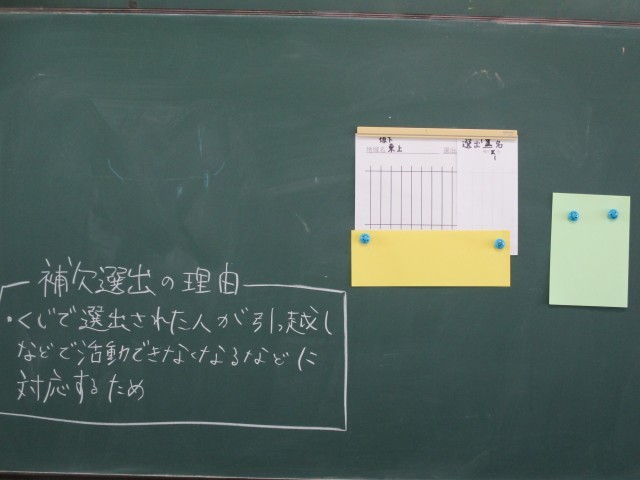 補欠選出の理由
・くじで選出された人が引っ越し
などで活動できなくなるなどに
対応するため
坂下
東上
選出